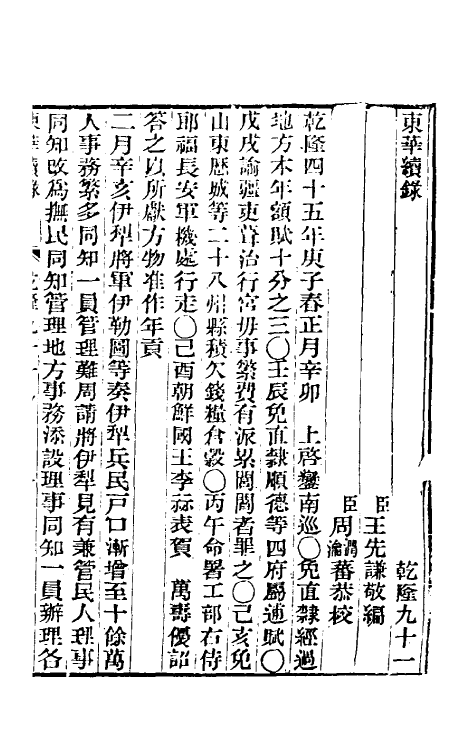 東華續錄
乾隆九十一
臣王先謙敬編
臣周潤蕃恭校
瀹
乾隆四十五年庚子春正月辛卯　上啓鑾南巡〇免直隸經過
地方本年額賦十分之三〇壬辰免直隸順德等四府屬逋賦〇
戊戌諭疆吏葺治行宮毋事繁費有派累閭閻者罪之〇己亥免
山東歷城等二十八州縣積欠錢糧倉穀〇丙午命署工部右侍
郎福長安軍機處行走〇己酉朝鮮國王李祘表賀　萬壽優詔
答之以所獻方物准作年貢
二月辛亥伊犁將軍伊勒圖等奏伊犁兵民戶口漸增至十餘萬
人事務繁多同知一員管理難周請將伊犁見有兼管民人理事
同知改爲撫民同知管理地方事務添設理事同知一員辦理各
東華續錄　乾隆九十一